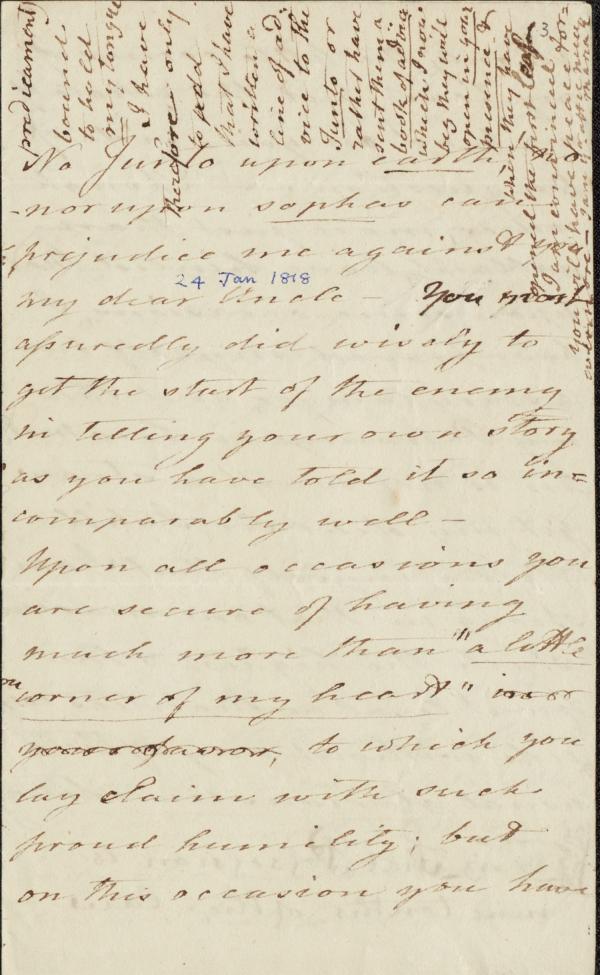 3
No Junto upon earth, no
- nor upon sophas can
prejudice me against you
24 Jan 1818
my dear Uncle - You most
assuredly did wisely to
get the start of the enemy
in telling your own story
as you have told it so in=
comparably well -
Upon all occasions you
are secure of having
much more than "a little
corner of my heart" in
your favor, to which you
lay claim with such
proud humility; but
on this occasion you have
predicament)
bound
to hold
my tongue
I have
therefore only
to add
that I have
written a
line of ad=
vice to the
Junto or
rather have
sent them a
book of advice
which I now
beg they will
open in your
presence - &
when they have
the first leaf
I am convinced for=
you will have peace